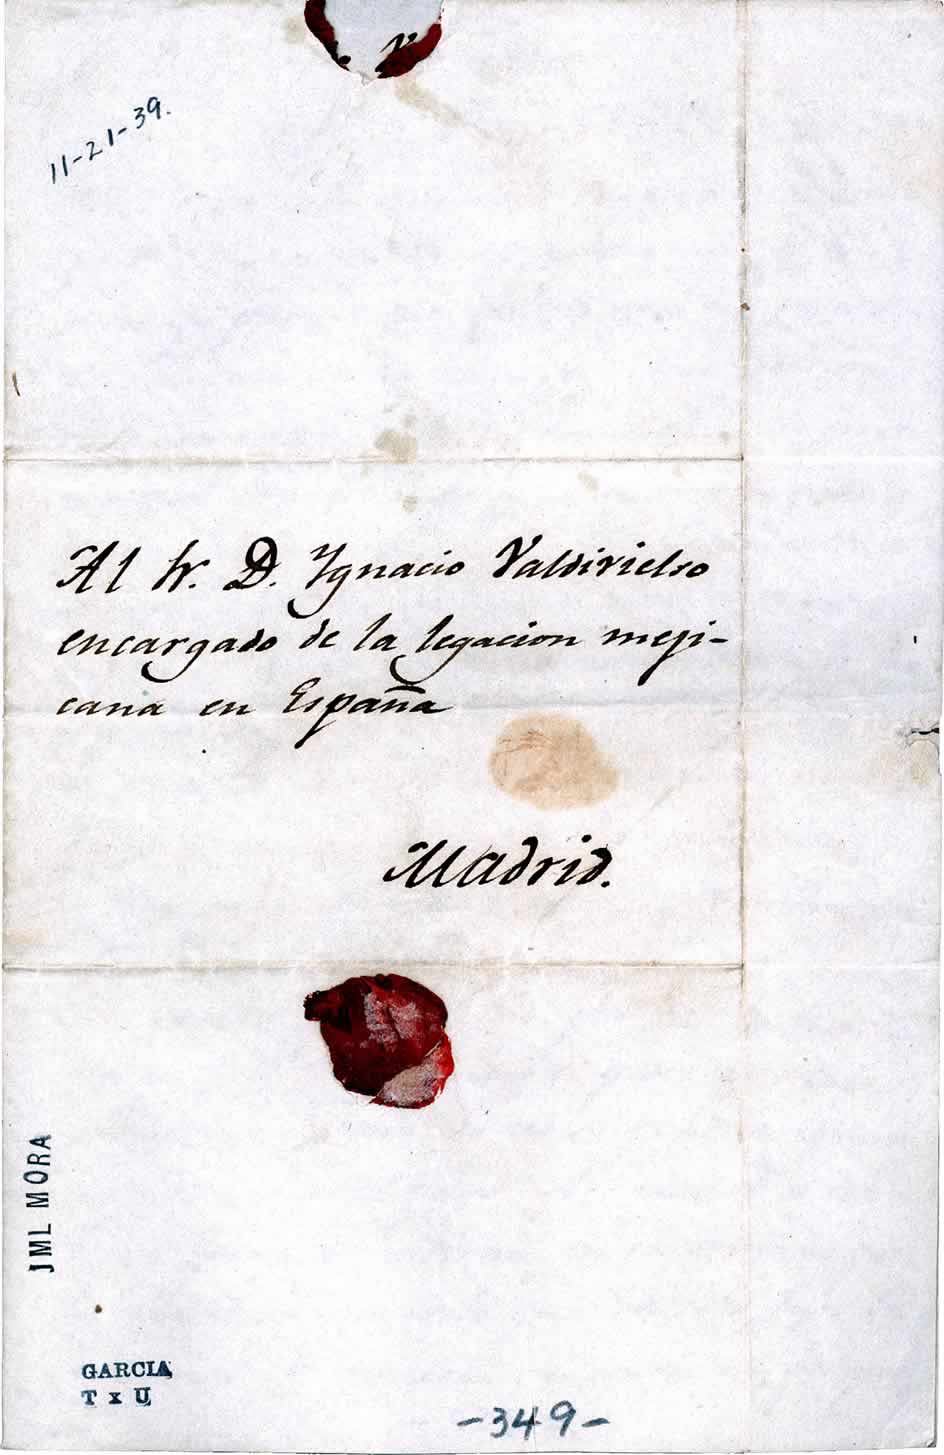 11-21-39.
Al Sr. D. Ygnacio Valdivielso
encargado de la legacion meji-
cana en España
Madrid.
JML MORA
GARCIA
T x U
-349-